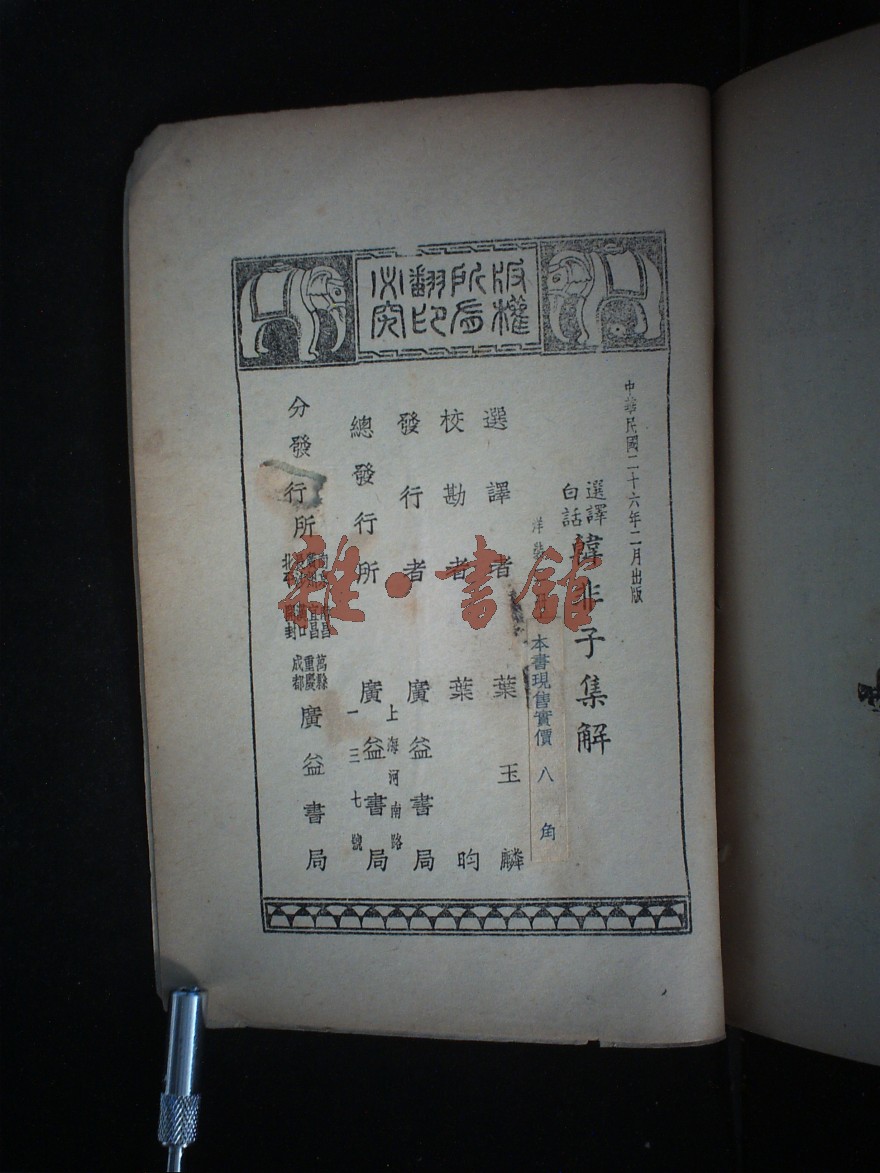 版權所有
翻印必究
中華民國二十六年二月出版
選譯
白話
韓非子集解
洋裝
本書現售實價 八角
選譯者 葉玉麟
校勘者 葉昀
發行者 廣益書局
總發行所 廣益書局
上海河南路
一三七號
分發行所
北平
開封
南昌
宜昌
萬縣
重慶
成都
廣益書局
雜·書館